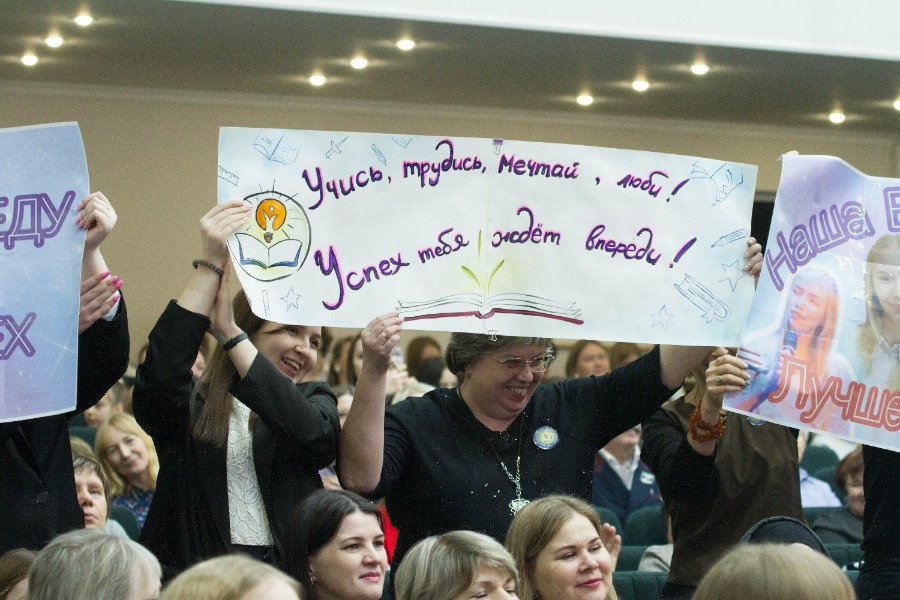 ЕДУ
ЕХ
Учись, трудись, мечтай, люби!
Успех тебя ждёт впереди!
Наша В
Лучше